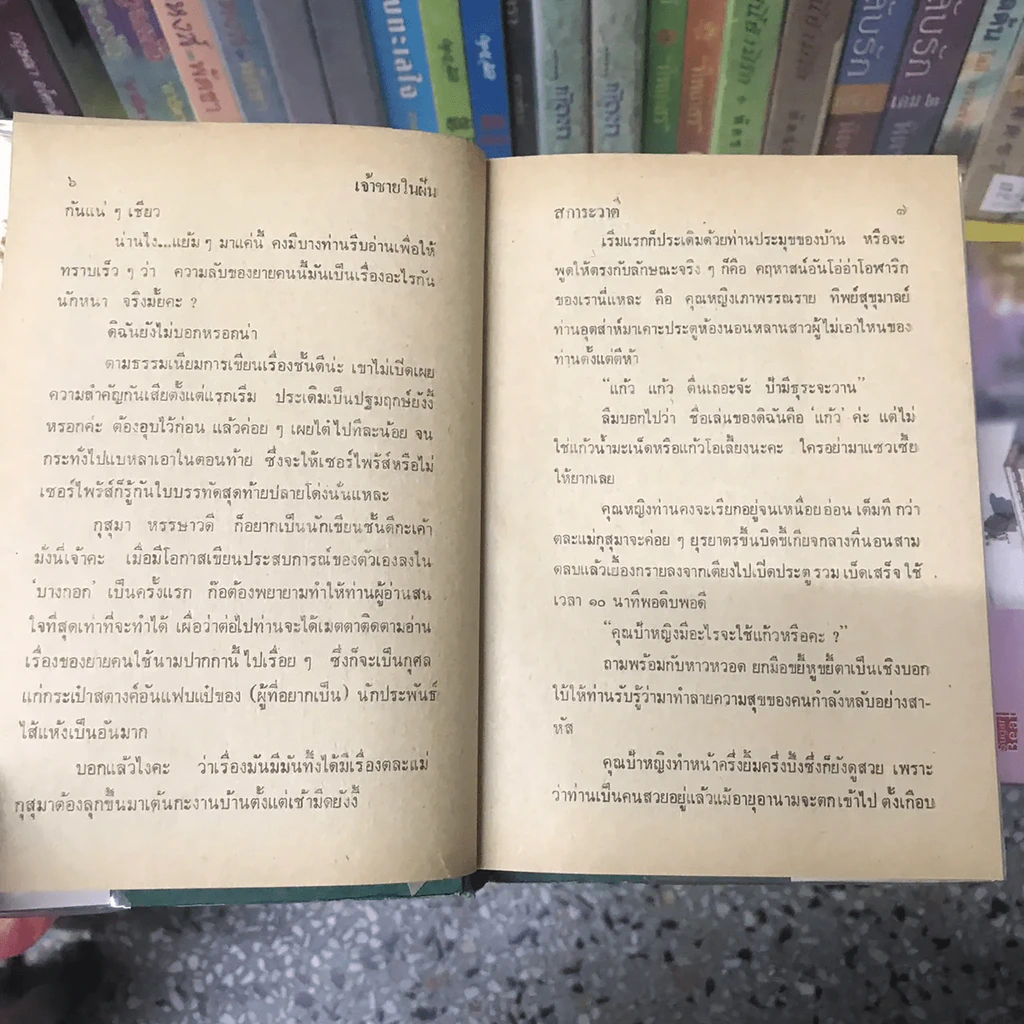 บทกะเลใจ
๖
เจ้าชายในฝัน
กันแน่ ๆ เชียว
น่านไง...แย้ม ๆ มาแค่นี้ คงมีบางท่านรีบอ่านเพื่อให้
ทราบเร็ว ๆ ว่า ความลับของยายคนนี้มันเป็นเรื่องอะไรกัน
นักหนา จริงมั้ยคะ ?
ดิฉันยังไม่บอกหรอกน่า
ตามธรรมเนียมการเขียนเรื่องชั้นดีน่ะ เขาไม่เปิดเผย
ความสำคัญกันเสียตั้งแต่แรกเริ่ม ประเดิมเป็นปฐมฤกษ์ยังงี้
หรอกค่ะ ต้องอุบไว้ก่อน แล้วค่อย ๆ เผยไต๋ไปทีละน้อย จน
กระทั่งไปแบหลาเอาในตอนท้าย ซึ่งจะให้เซอร์ไพร้ส์หรือไม่
เซอร์ไพร้ส์ก็รู้กันในบรรทัดสุดท้ายปลายโด่งนั่นแหละ
กุสุมา หรรษาวดี ก็อยากเป็นนักเขียนชั้นดีกะเค้า
มั่งนี่เจ้าคะ เมื่อมีโอกาสเขียนประสบการณ์ของตัวเองลงใน
‘บางกอก’ เป็นครั้งแรก ก๊อต้องพยายามทำให้ท่านผู้อ่านสน
ใจที่สุดเท่าที่จะทำได้ เผื่อว่าต่อไปท่านจะได้เมตตาติดตามอ่าน
เรื่องของยายคนใช้นามปากกานี้ไปเรื่อย ๆ ซึ่งก็จะเป็นกุศล
แก่กระเป๋าสตางค์อันแฟบแป้ของ (ผู้ที่อยากเป็น) นักประพันธ์
ไส้แห้งเป็นอันมาก
บอกแล้วไงคะ ว่าเรื่องมันมีมันทึ้งได้มีเรื่องตละแม่
กุสุมาต้องลุกขึ้นมาเต้นกะงานบ้านตั้งแต่เช้ามืดยังงี้
สการะวาตี
๗
เริ่มแรกก็ประเดิมด้วยท่านประมุขของบ้าน หรือจะ
พูดให้ตรงกับลักษณะจริง ๆ ก็คือ คฤหาสน์อันโอ่อ่าโอฬาริก
ของเรานี่แหละ คือ คุณหญิงเภาพรรณราย ทิพย์สุขุมาลย์
ท่านอุตส่าห์มาเคาะประตูห้องนอนหลานสาวผู้ไม่เอาไหนของ
ท่านตั้งแต่ตีห้า
“แก้ว แก้ว ตื่นเถอะจ้ะ ป้ามีธุระจะวาน”
ลืมบอกไปว่า ชื่อเล่นของดิฉันคือ ‘แก้ว’ ค่ะ แต่ไม่
ใช่แก้วน้ำมะเน็ดหรือแก้วโอเลี้ยงนะคะ ใครอย่ามาแซวเซี้ย
ให้ยากเลย
คุณหญิงท่านคงจะเรียกอยู่จนเหนื่อยอ่อน เต็มที กว่า
ตละแม่กุสุมาจะค่อย ๆ ยุรยาตรขึ้นบิดขี้เกียจกลางที่นอนสาม
ตลบแล้วเยื้องกรายลงจากเตียงไปเปิดประตู รวม เบ็ดเสร็จ ใช้
เวลา ๑๐ นาทีพอดิบพอดี
“คุณป้าหญิงมีอะไรจะใช้แก้วหรือคะ ?”
ถามพร้อมกับหาวหวอด ยกมือขยี้หูขยี้ตาเป็นเชิงบอก
ใบ้ให้ท่านรับรู้ว่ามาทำลายความสุขของคนกำลังหลับอย่างสา-
หัส
คุณป้าหญิงทำหน้าครึ่งยิ้มครึ่งบึ้งซึ่งก็ยังดูสวย เพราะ
ว่าท่านเป็นคนสวยอยู่แล้วแม้อายุอานามจะตก เข้าไป ตั้งเกือบ